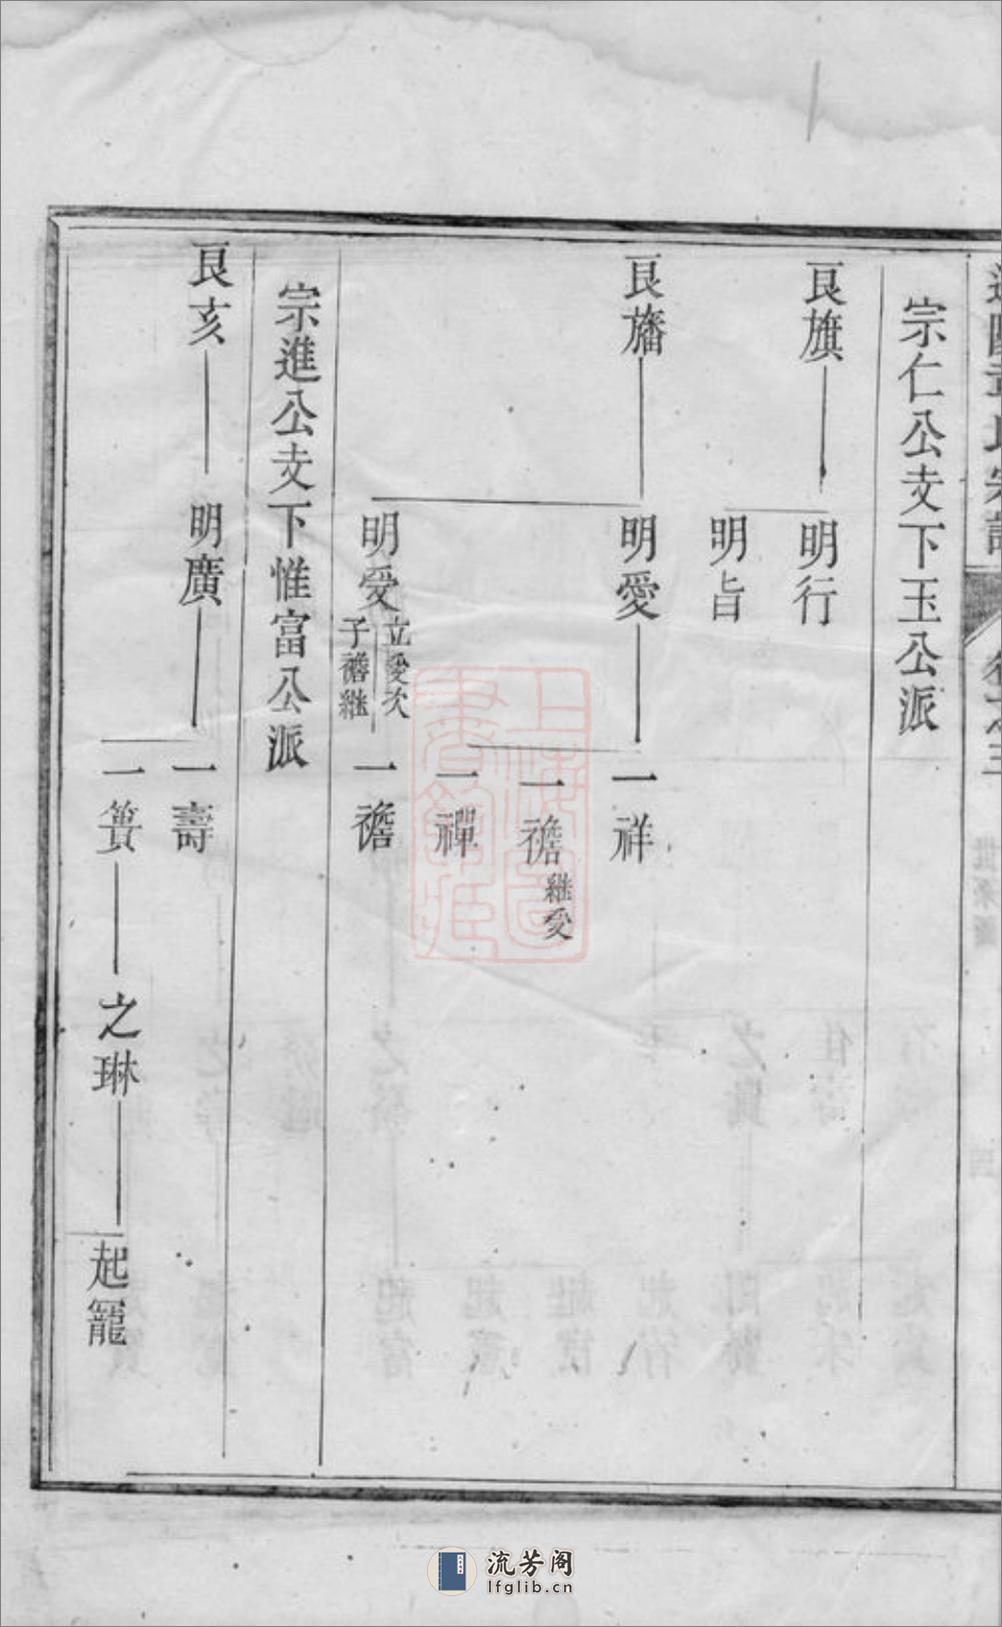 宗仁公支下玉公派
艮旗
明行
明旨
艮旛
明愛
一祥
一襜
繼受
一禪
明受
立愛次
子襜繼
一襜
宗進公支下惟富公派
艮亥
明廣
一壽
一簣
之琳
起寵
流芳阁
lfglib.cn